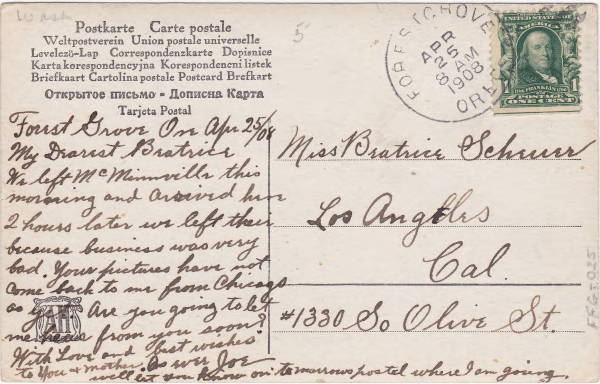 Wash
5
Postkarte Carte postale
Weltpostverein Union postale universelle
Levelező-Lap Correspondenzkarte Dopisnice
Karta korespondencyjna Korespondencni listek
Briefkaart Cartolina postale Postcard Brefkort
Открытое письмо - Дописна Карта
Tarjeta Postal
FOREST GROVE
APR
25
8 AM
1908
OREG.
UNITED STATES OF AMERICA
1 1
POSTAGE
ONE CENT
Forest Grove On Apr 25/08
My Dearest Beatrice
We left McMinnville this
morning and arrived here
2 hours later we left their
because business was very
bad. Your pictures have not
come back to me from Chicago
as yet. Are you going to let
me hear from you soon?
With Love and best wishes
to you + mother. As ever Joe
will let you know on tomorrows postel where I am going.
AH
Miss Beatrice Scheuer
Los Angeles
Cal.
#1330 So Olive St.